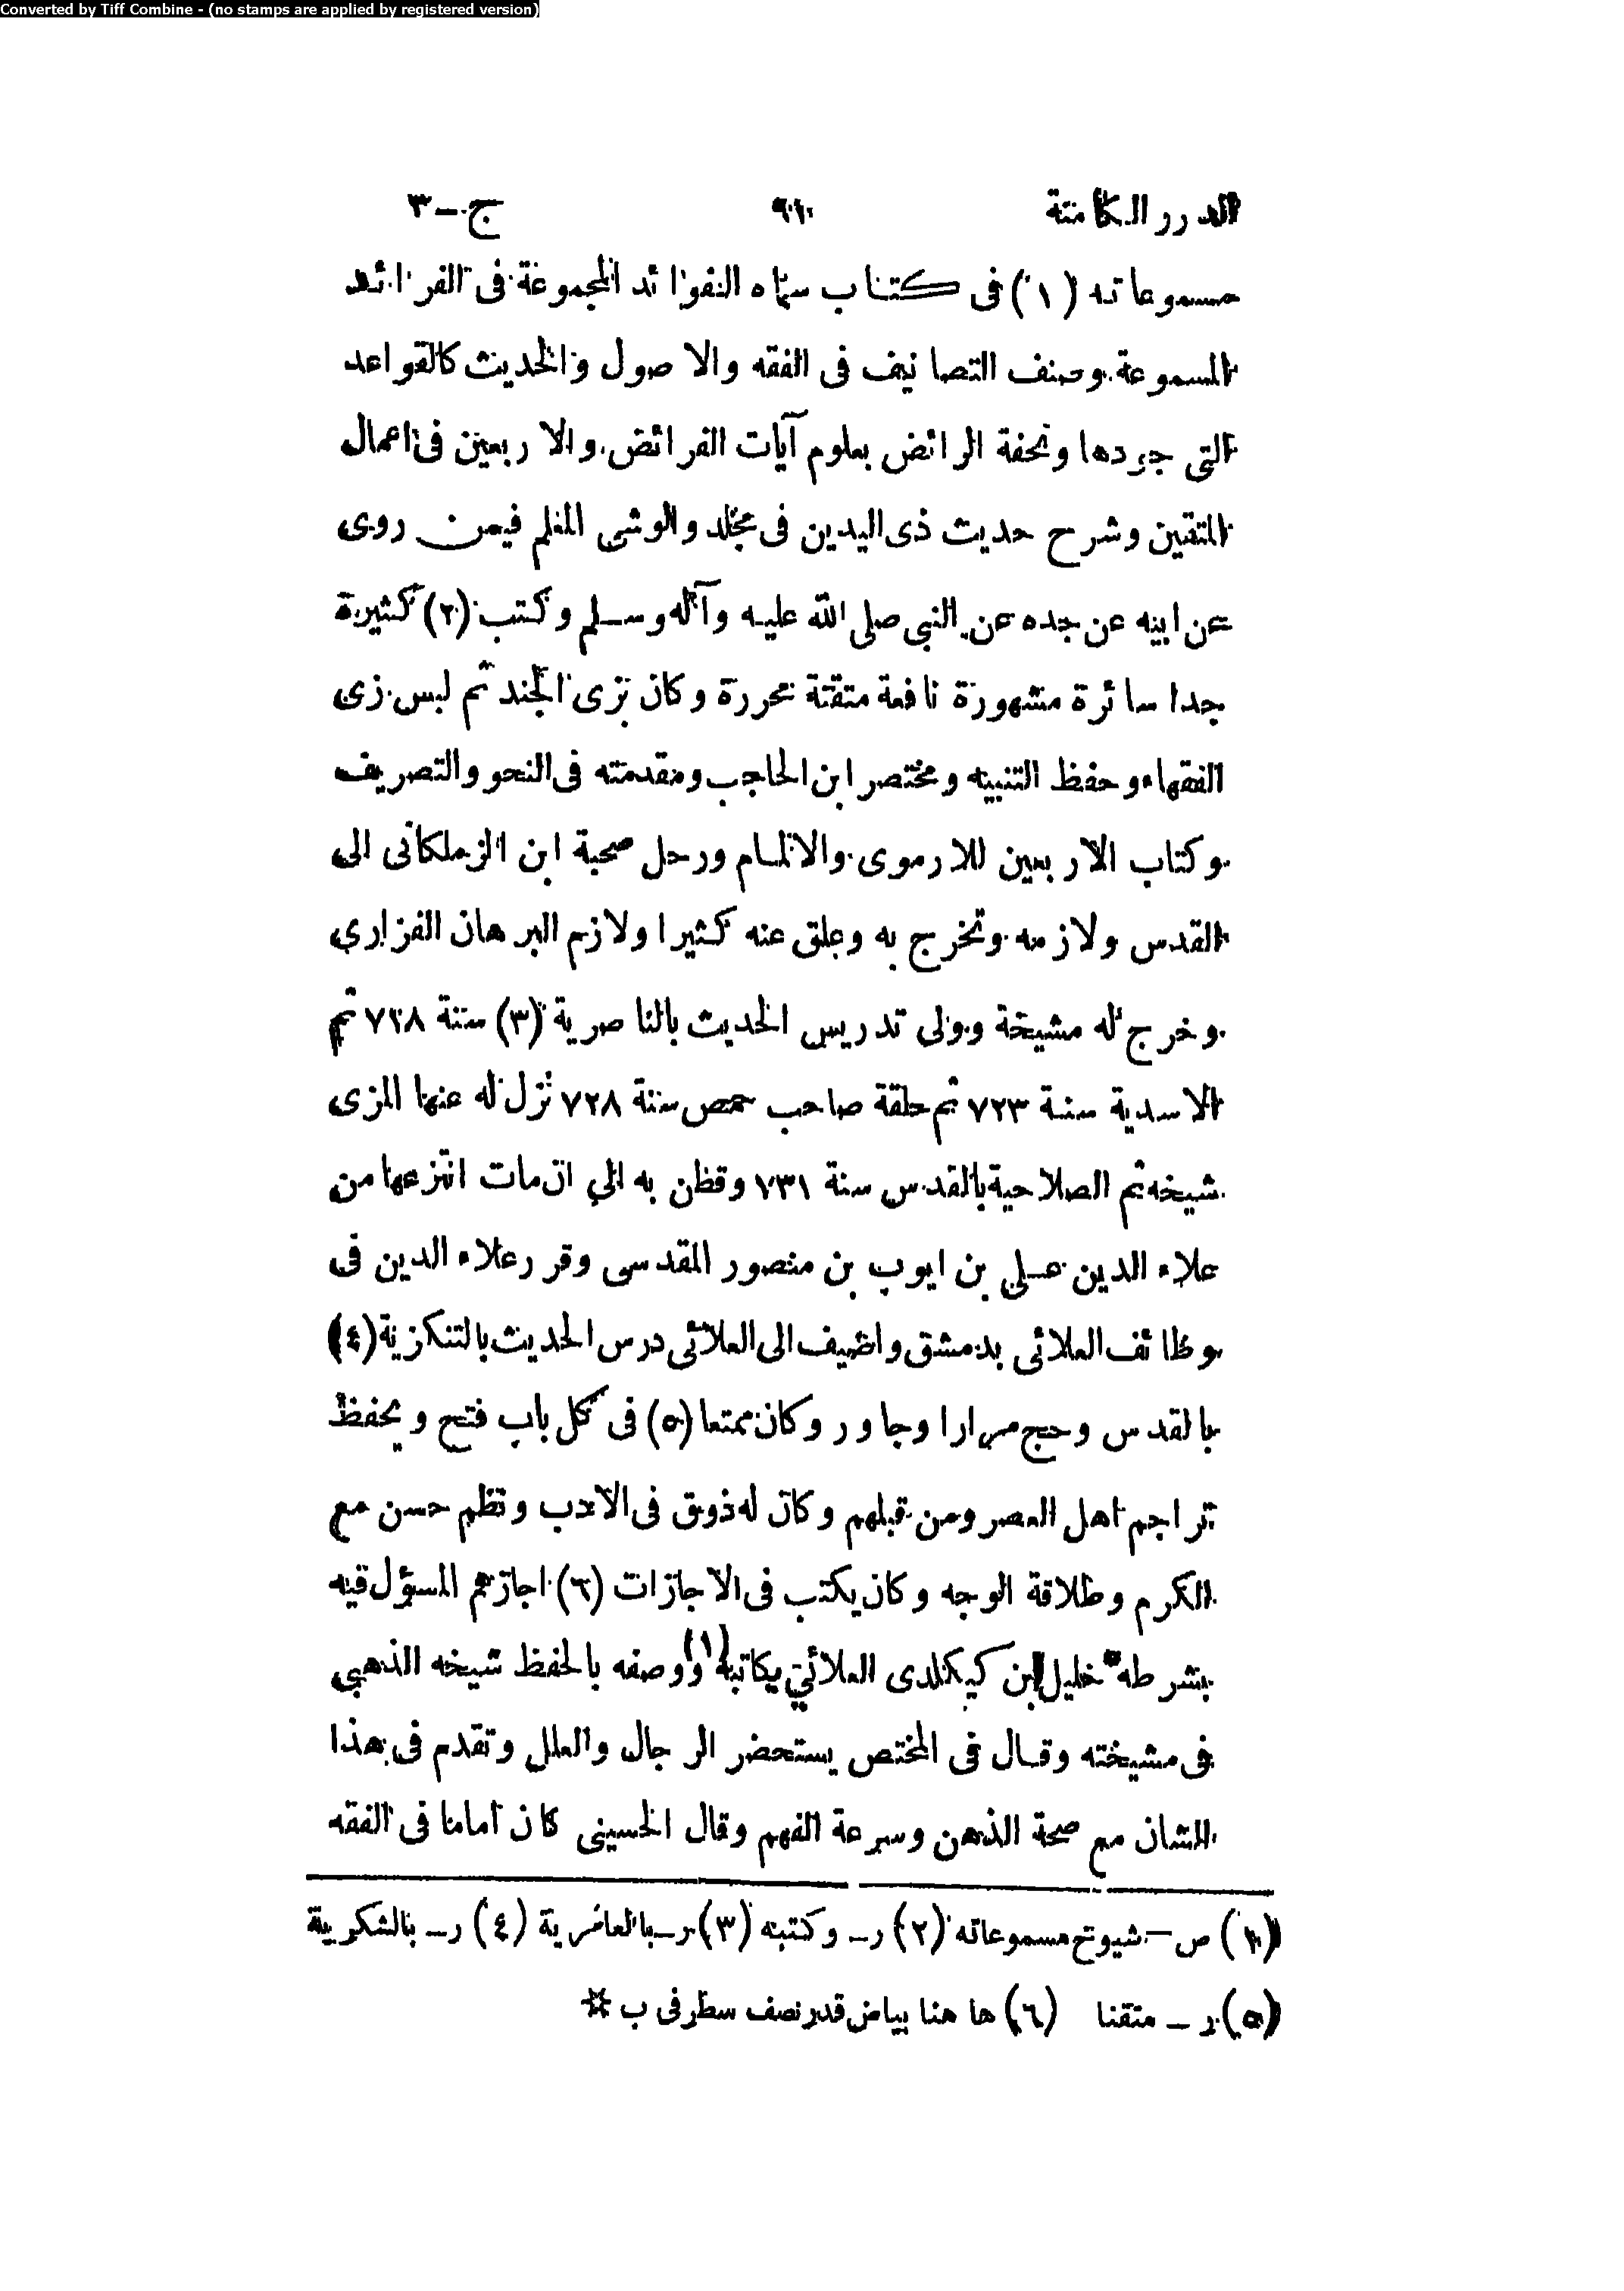 Converted by Tiff Combine - (no stamps are applied by registered version)
الدرر الكامنة ٩١ ج-٣
مسموعاته (١) فى كتاب سماه الفوائد المجموعة فى الفرائد
المسموعة وصنف التصانيف فى الفقه والاصول والحديث كالقواعد
التى جردها وتحفة الرائض بعلوم آيات الفرائض والاربعين فى اعمال
المتقين وشرح حديث ذى اليدين فى مجلد والوشى المعلم فيمن روى
عن ابيه عن جده عن النبى صلى الله عليه وآله وسلم وكتب (٢) كثيرة
جدا سائرة مشهورة نافعة متقنة محررة وكان بزى الجند ثم لبس زى
الفقهاء وحفظ التنبيه ومختصر ابن الحاجب ومقدمته فى النحو والتصريف
وكتاب الاربعين للارموى والالمام ورحل صحبة ابن الزملكانى الى
القدس ولازمه وتخرج به وعلق عنه كثيرا ولازم البرهان الفزاري
وخرج له مشيخة وولى تدريس الحديث بالناصرية (٣) سنة ٧٢٨ ثم
الاسدية سنة ٧٢٣ ثم حلقة صاحب حمص سنة ٧٢٨ نزل له عنها المزى
شيخه ثم الصلاحية بالقدس سنة ٧٣١ وقطن به الى ان مات انتزعها من
علاء الدين على بن ايوب بن منصور المقدسى وقرر علاء الدين فى
وظائف العلائى بدمشق واضيف الى العلائى درس الحديث بالتنكزية (٤)
بالقدس وحج مرارا وجاور وكان ممتعا (٥) فى كل باب فتح ويحفظ
تراجم اهل العصر ومن قبلهم وكان له ذوق فى الادب ونظم حسن مع
الكرم وطلاقة الوجه وكان يكتب فى الاجازات (٦) اجازهم المسؤل فيه
بشرطه * خليل ابن كيكلدى العلائي يكاتبه (١) ووصفه بالحفظ شيخه الذهبي
فى مشيخته وقال فى المختص يستحضر الرجال والعلل وتقدم فى هذا
الشان مع صحة الذهن وسرعة الفهم وقال الحسينى كان اماما فى الفقه
(١) ص – شيوخ مسموعاته (٢) ر – وكتبه (٣) ر – بالعامرية (٤) ر – بالشكرية
(٥) ر – متقنا (٦) ها هنا بياض قدر نصف سطر فى ب *